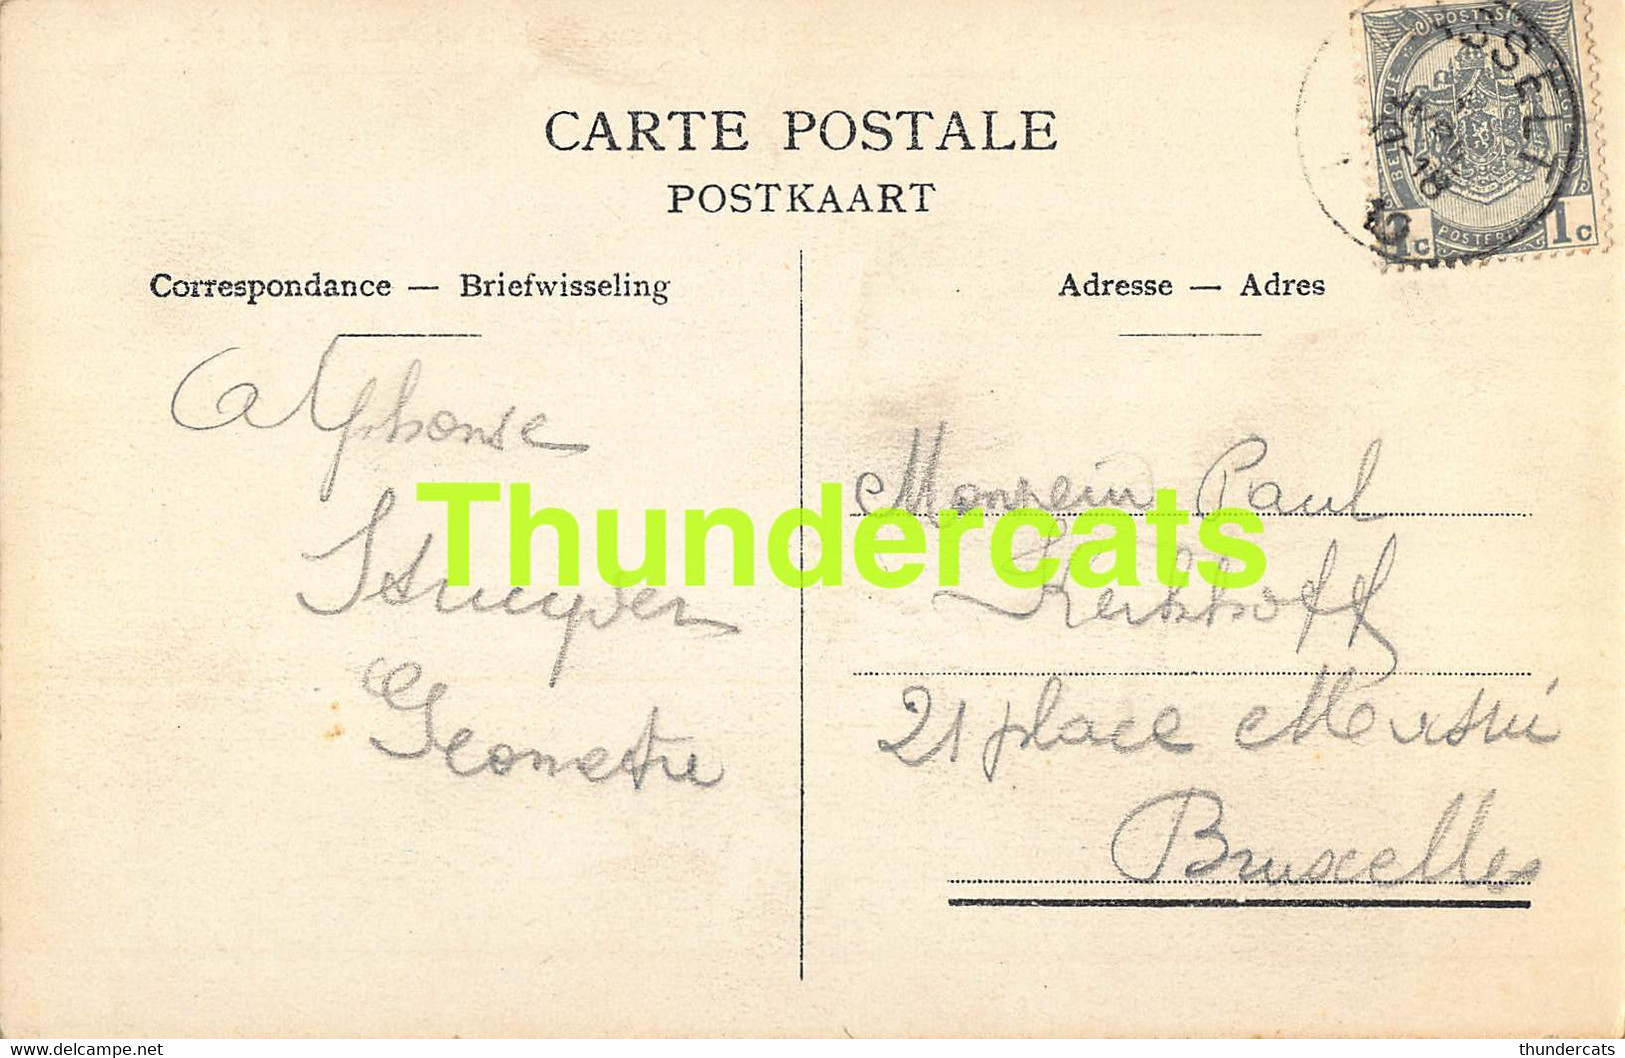 CARTE POSTALE
POSTKAART
POSTES
BELGIQUE
BELGIE
POSTERIJEN
1c 1c
SSELT
17-18
Correspondance — Briefwisseling
Adresse — Adres
Alphonse
Struyven
Geometre
Monsieur Paul
Kerkhoff
21 place
Bruxelles
Thundercats
delcampe.net
thundercats